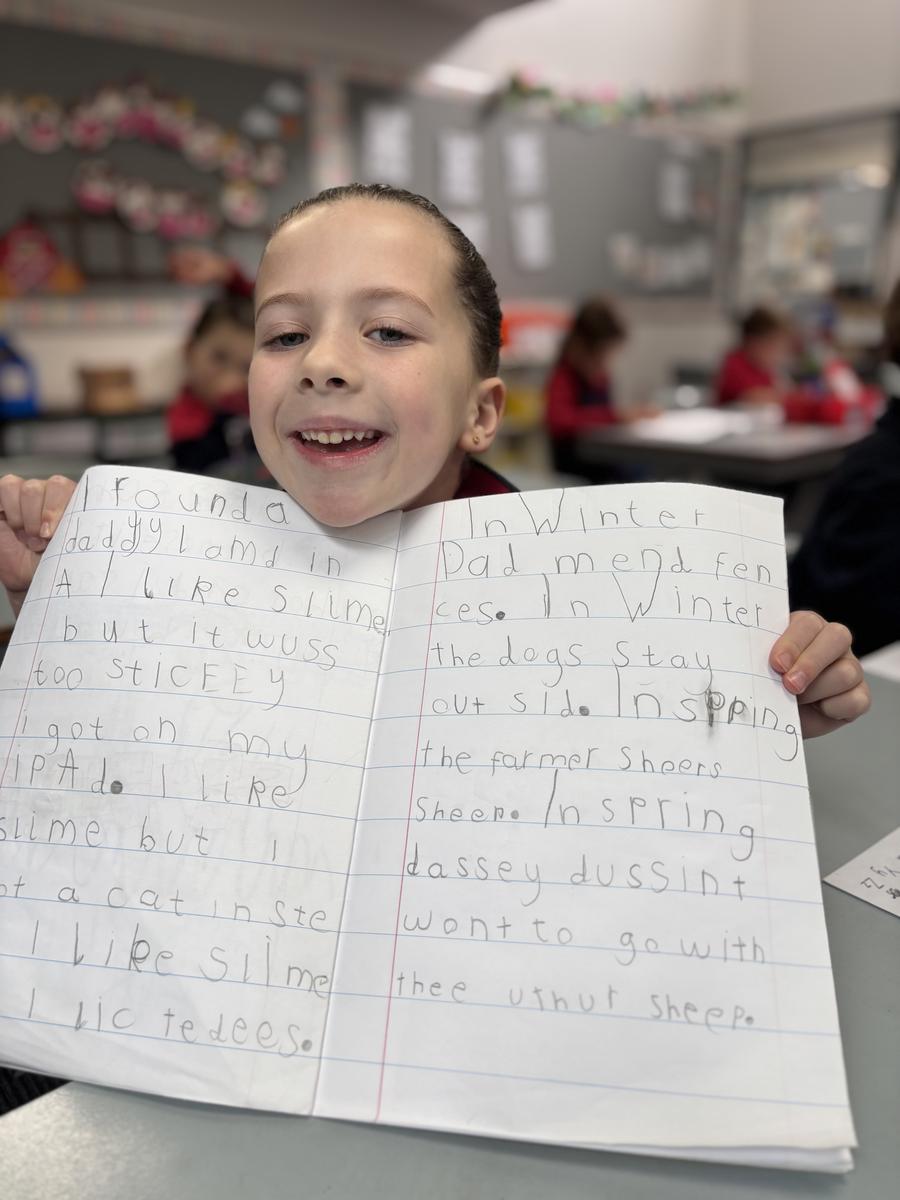 I found a
daddy l amd in
A I like slime
but it wuss
too STiCFEy
i got on my
iPAd. I like
slime but I
ot a cat in ste
I like slime
I lic tedees.
In Winter
Dad mend fen
ces. In Winter
the dogs stay
out sid. In spring
the farmer sheers
sheep. In spring
dassey dussint
wont to go with
thee uthur sheep.